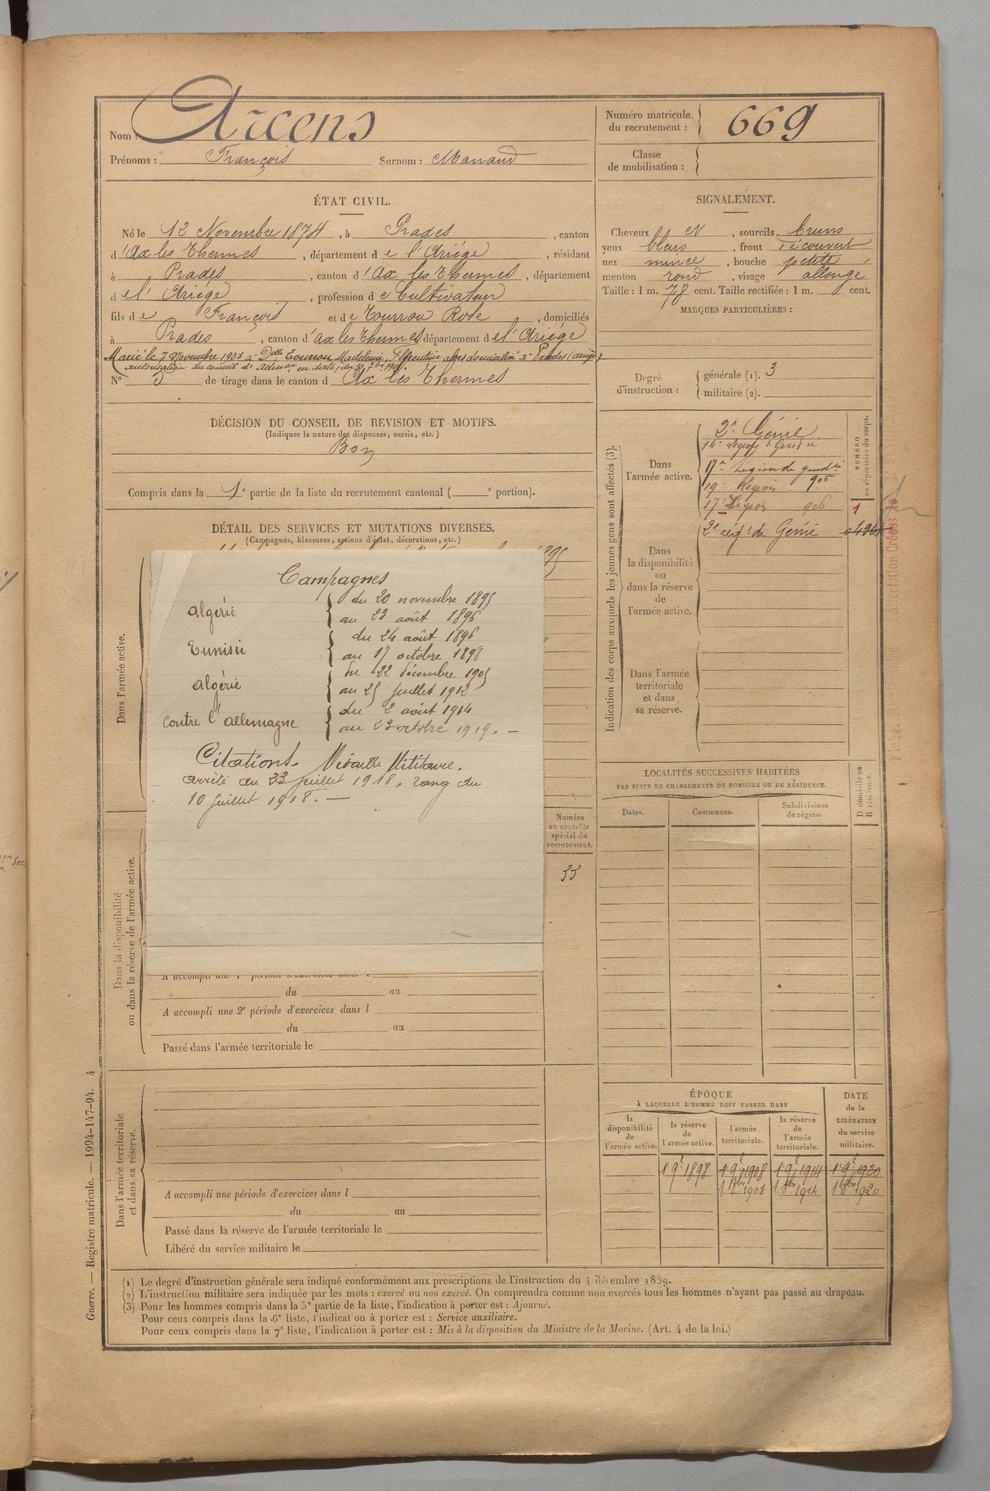 Nom : Arcens
Prénoms : François Surnom : Manaud
Numéro matricule du recrutement : 669
Classe de mobilisation :
ÉTAT CIVIL.
Né le 12 Novembre 1874, à Prades, canton
d'Ax les Thermes, département de l'Ariége, résidant
à Prades, canton d'Ax les Thermes, département
de l'Ariége, profession de Cultivateur
fils de François et de Tourrou Rose, domiciliés
à Prades, canton d'ax les Thermes département de l'Ariége
Marié le 7 Novembre 1903 à Delle Tourrou Madeleine, domiciliée à Prades (Ariège)
N° de tirage dans le canton d'Ax les Thermes
SIGNALEMENT.
Cheveux N, sourcils bruns
yeux bleus, front découvert
nez mince, bouche petite
menton rond, visage allongé
Taille : 1 m. 78 cent. Taille rectifiée : 1 m. cent.
MARQUES PARTICULIÈRES :
Degré d'instruction :
générale (1). 3
militaire (2).
DÉCISION DU CONSEIL DE REVISION ET MOTIFS.
(Indiquer la nature des dispenses, sursis, etc.)
Bon
Compris dans la 1e partie de la liste du recrutement cantonal ( e portion).
DÉTAIL DES SERVICES ET MUTATIONS DIVERSES.
(Campagnes, blessures, actions d'éclat, décorations, etc.)
Dans l'armée active.
Campagnes
algérie
du 20 novembre 1895
au 23 août 1896
Tunisie
du 24 août 1896
au 17 octobre 1898
algérie
du 22 décembre 1905
au 25 juillet 1912
contre l'allemagne
du 2 août 1914
au 23 octobre 1919. —
Citations. Médaille Militaire.
arrêté du 23 juillet 1918. rang du
10 juillet 1918. —
Numéro
au contrôle
spécial du
recrutement.
33
Dans la disponibilité
ou dans la réserve de l'armée active.
A accompli une 1e période d'exercices dans l
du au
A accompli une 2e période d'exercices dans l
du au
Passé dans l'armée territoriale le
Dans l'armée territoriale
et dans sa réserve.
A accompli une période d'exercices dans l
du au
Passé dans la réserve de l'armée territoriale le
Libéré du service militaire le
Indication des corps auxquels les jeunes gens sont affectés (3).
NUMÉRO
au répertoire du corps.
Dans
l'armée active.
2e Génie
17e Légion de gendie
19e Légion 905
17e Légion 906
1
Dans
la disponibilité
ou
dans la réserve
de
l'armée active.
2e régt de Génie
Dans l'armée
territoriale
et dans
sa réserve.
LOCALITÉS SUCCESSIVES HABITÉES
PAR SUITE DE CHANGEMENTS DE DOMICILE OU DE RÉSIDENCE.
D domicile ou
R résidence.
Dates.
Communes.
Subdivisions
de région.
ÉPOQUE
À LAQUELLE L'HOMME DOIT PASSER DANS
DATE
de la
LIBÉRATION
du service
militaire.
la
disponibilité
de
l'armée active.
la réserve
de
l'armée active.
l'armée
territoriale.
la réserve
de
l'armée
territoriale.
1 9e 1898
1 9e 1908
1 9e 1914
1 9e 1920
Guerre. — Registre matricule. — 1994-147-94. 4
(1) Le degré d'instruction générale sera indiqué conformément aux prescriptions de l'instruction du 4 décembre 1889.
(2) L'instruction militaire sera indiquée par les mots : exercé ou non exercé. On comprendra comme non exercés tous les hommes n'ayant pas passé au drapeau.
(3) Pour les hommes compris dans la 5e partie de la liste, l'indication à porter est : Ajourné.
Pour ceux compris dans la 6e liste, l'indication à porter est : Service auxiliaire.
Pour ceux compris dans la 7e liste, l'indication à porter est : Mis à la disposition du Ministre de la Marine. (Art. 4 de la loi.)